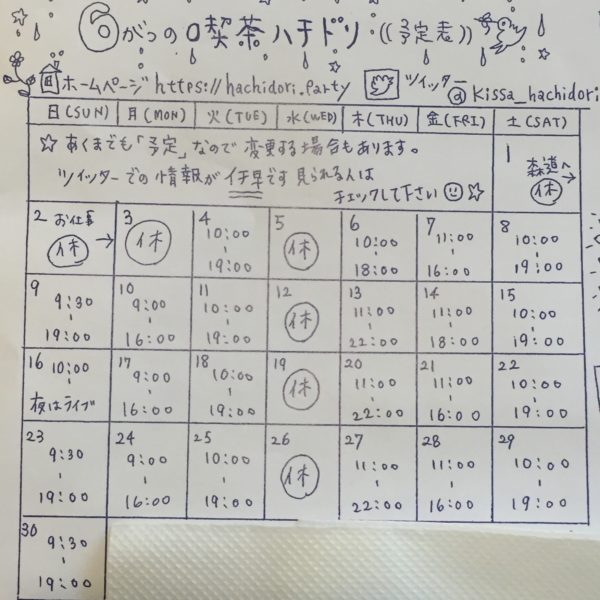 6がつの喫茶ハチドリ((予定表))
ホームページ https://hachidori.party ツイッター @kissa_hachidori
日(SUN) 月(MON) 火(TUE) 水(WED) 木(THU) 金(FRI) 土(SAT)
☆あくまでも「予定」なので変更する場合もあります。
ツイッターでの情報が1番早です見られる人は
チェックして下さい☺☆
1 森道へ→
休
2 お仕事→
休
3
休
4
10:00
-
19:00
5
休
6
10:00
-
18:00
7
11:00
-
16:00
8
10:00
-
19:00
9
9:30
-
19:00
10
9:00
-
16:00
11
10:00
-
19:00
12
休
13
11:00
-
22:00
14
11:00
-
18:00
15
10:00
-
19:00
16
10:00
-
夜はライブ
17
9:00
-
16:00
18
10:00
-
19:00
19
休
20
11:00
-
22:00
21
11:00
-
16:00
22
10:00
-
19:00
23
9:30
-
19:00
24
9:00
-
16:00
25
10:00
-
19:00
26
休
27
11:00
-
22:00
28
11:00
-
16:00
29
10:00
-
19:00
30
9:30
-
19:00